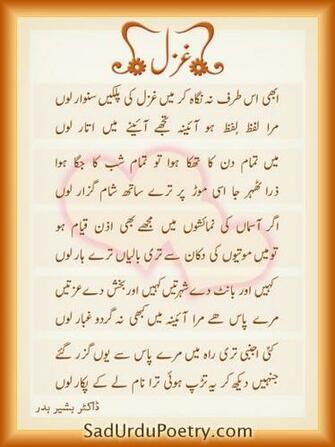 غزل
ابھی اس طرف نہ نگاہ کر میں غزل کی پلکیں سنوار لوں
مرا لفظ لفظ ہو آئینہ تجھے آئینے میں اتار لوں
میں تمام دن کا تھکا ہوا تو تمام شب کا جگا ہوا
ذرا ٹھہر جا اسی موڑ پر ترے ساتھ شام گزار لوں
اگر آسماں کی نمائشوں میں مجھے بھی اذن قیام ہو
تو میں موتیوں کی دکان سے تری بالیاں ترے ہار لوں
کہیں اور بانٹ دے شہرتیں کہیں اور بخش دے عزتیں
مرے پاس ھے مرا آئینہ میں کبھی نہ گرد و غبار لوں
کئی اجنبی تری راہ میں مرے پاس سے یوں گزر گئے
جنہیں دیکھ کر یہ تڑپ ہوئی ترا نام لے کے پکار لوں
ڈاکٹر بشیر بدر
SadUrduPoetry.com